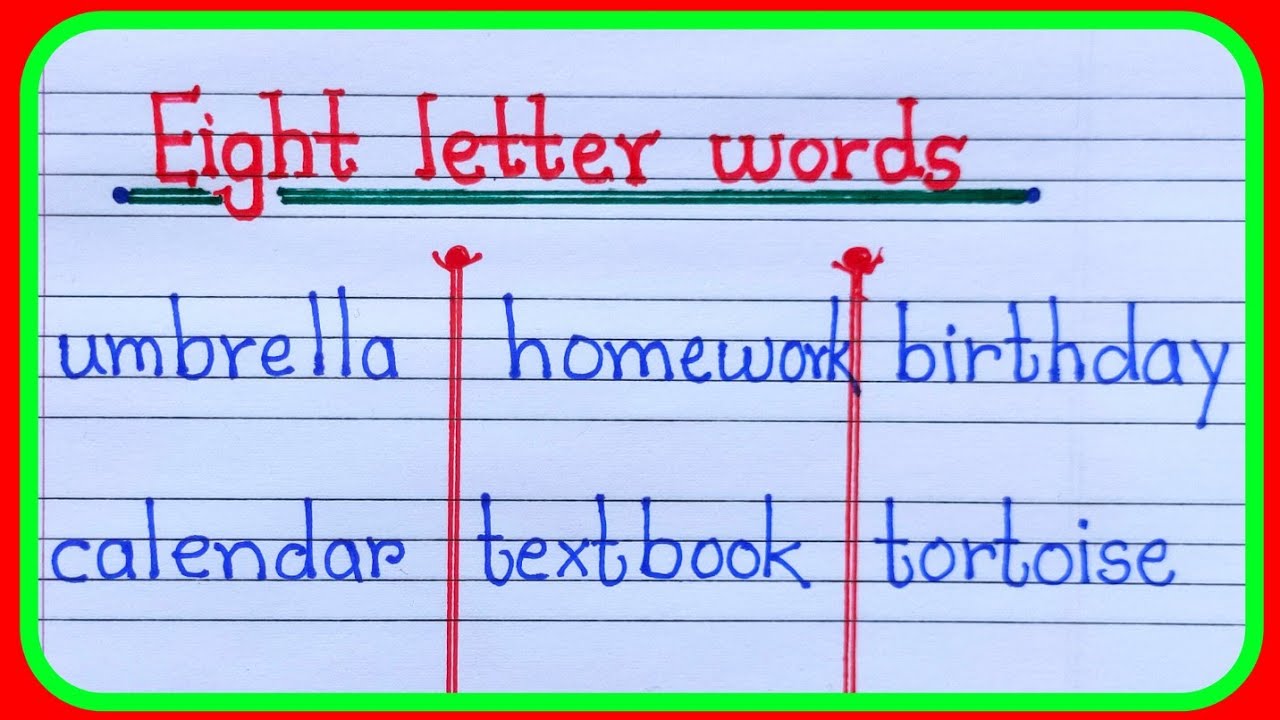 Eight letter words
umbrella homework birthday
calendar textbook tortoise